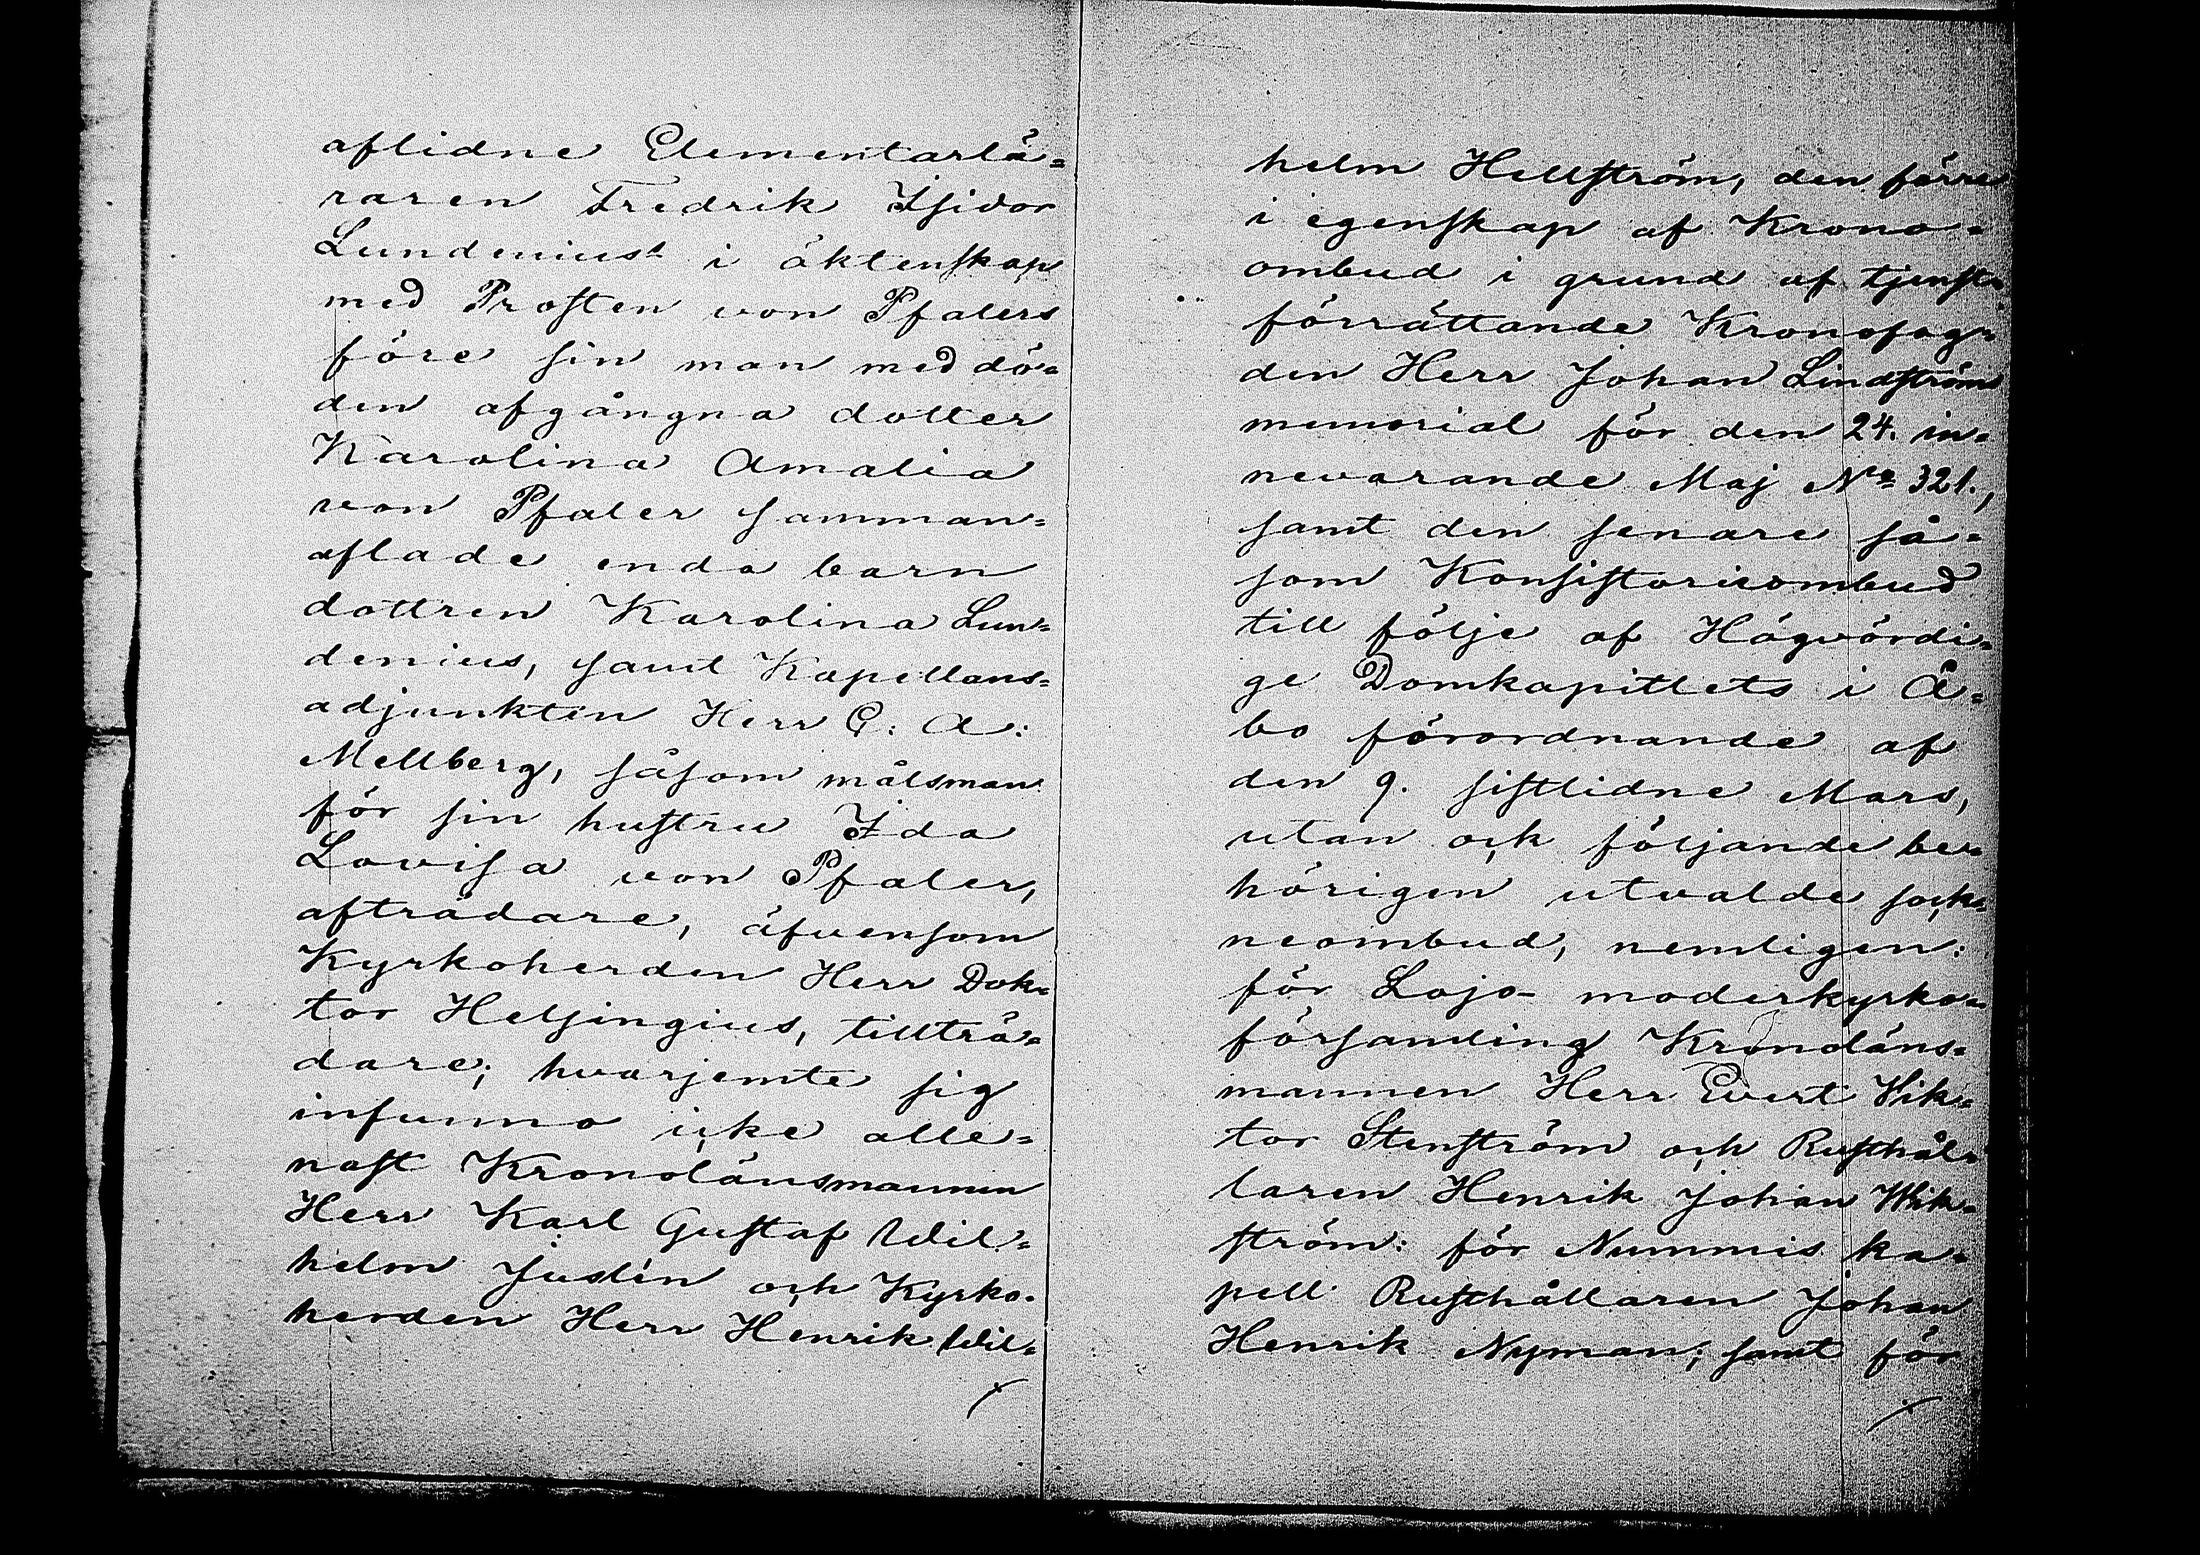 aflidne Elementarlä=
raren Fredrik Isidor
Lundenius i äktenskap
med Prosten von Pfalers
före sin man med dö=
den afgångna dotter
Karolina Amalia
von Pfaler samman=
aflade enda barn
dottren Karolina Lun=
denius, samt Kapellans=
adjunkten Herr C: A:
Mellberg, såsom målsman
för sin hustru Ida
Lovisa von Pfaler,
afträdare, äfvensom
Kyrkoherden Herr Dok=
tor Helsingius, tillträ=
dare; hvarjemte sig
infunno icke alle=
nast Kronolänsmannen
Herr Karl Gustaf Wil=
helm Juslén och Kyrko=
herden Herr Henrik Wil=
helm Hellström, den förre
i egenskap af Krono=
ombud i grund af tjenst=
förrättande Kronofog=
den Herr Johan Lindströms
memorial för den 24. in=
nevarande Maj No 321.,
samt den senare så=
som Konsistorieombud
till följe af Högvördi=
ge Domkapitlets i Å=
bo förordnande af
den 9. sistlidne Mars,
utan ock följande be=
hörigen utvalde sock=
neombud, nemligen:
för Lojo moderkyrko=
församling Kronoläns=
mannen Herr Evert Vik=
tor Stenström och Rusthål=
laren Henrik Johan Wik=
ström: för Nummis ka=
pell Rusthållaren Johan
Henrik Nyman; samt för